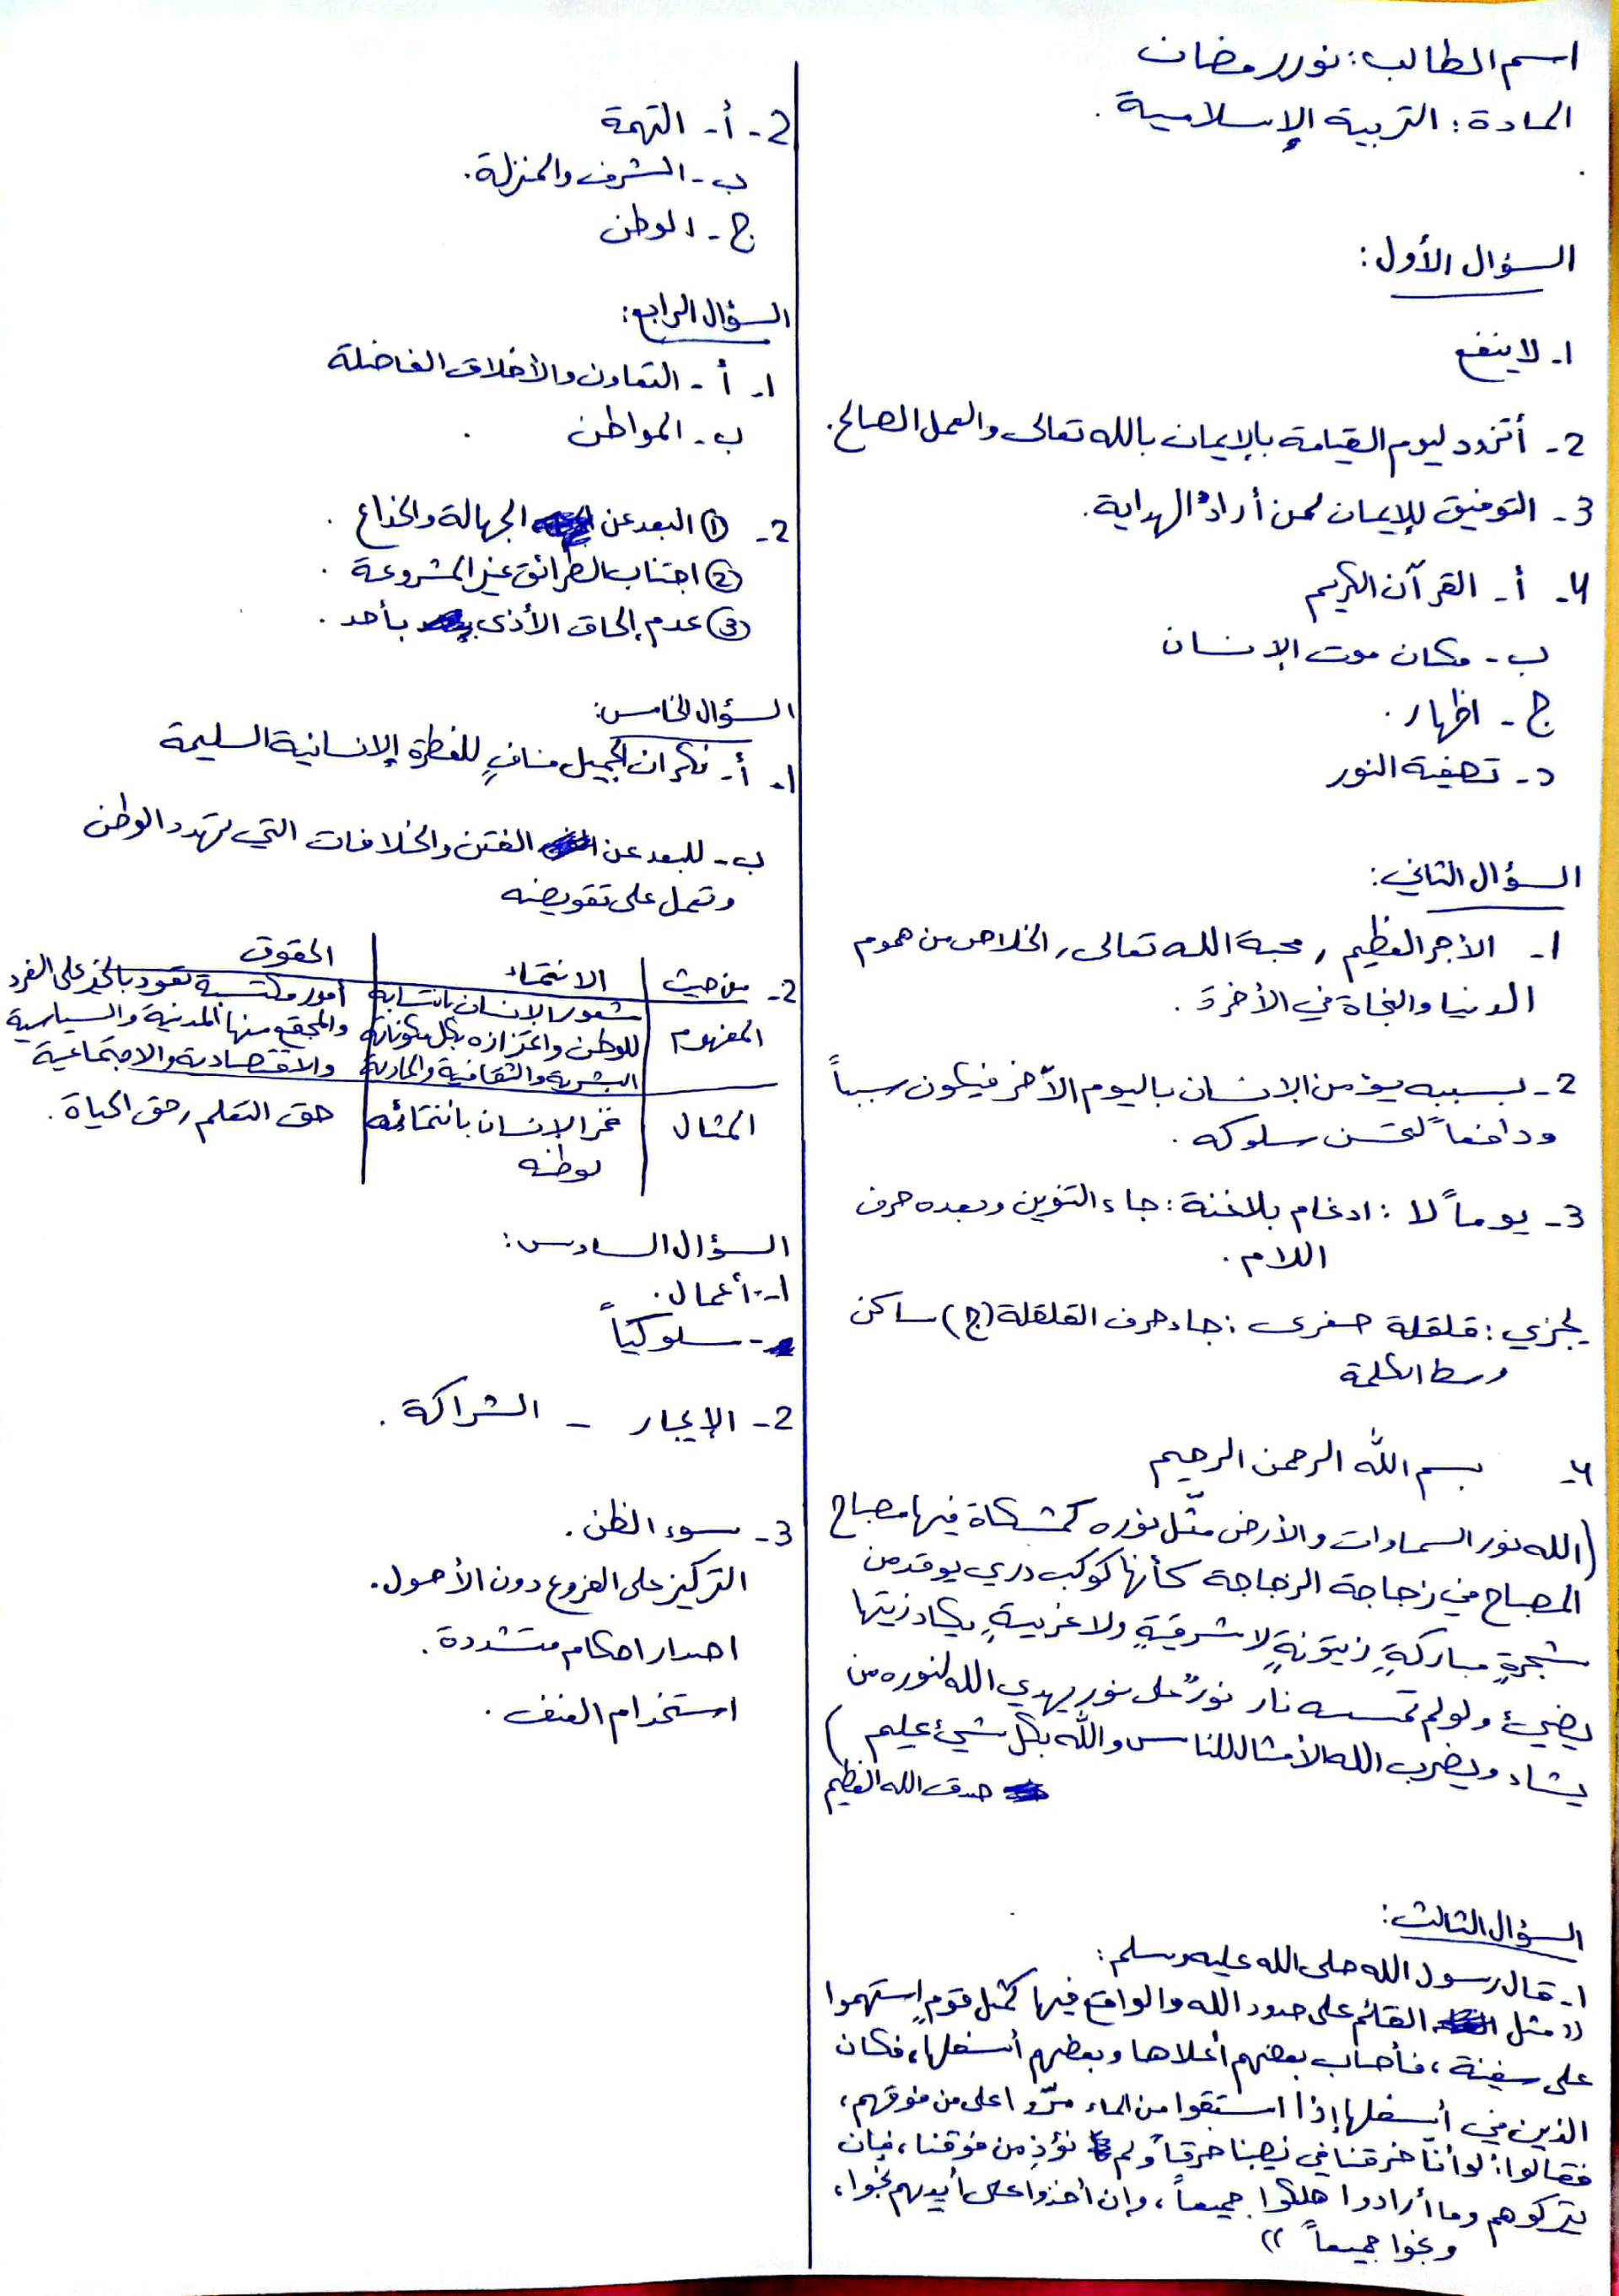 اسم الطالب: نور رمضان
المادة: التربية الإسلامية.
السؤال الأول:
1- لا ينفع
2- أتزود ليوم القيامة بالإيمان بالله تعالى والعمل الصالح.
3- التوفيق للإيمان لمن أراد الهداية.
4- أ- القرآن الكريم
ب- مكان موت الإنسان
ج- اظهار.
د- تصفية النور
السؤال الثاني:
1- الأجر العظيم، محبة الله تعالى، الخلاص من هموم
الدنيا والنجاة في الأخرة.
2- بسببه يؤمن الإنسان باليوم الآخر فيكون سبباً
ودافعاً لحسن سلوكه.
3- يوماً لا: ادغام بلاغنة: جاء التنوين وبعده حرف
اللام.
يجزي: قلقلة صغرى: جاء حرف القلقلة (ج) ساكن
وسط الكلمة
4- بسم الله الرحمن الرحيم
(الله نور السماوات والأرض مثل نوره كمشكاة فيها مصباح
المصباح في زجاجة الزجاجة كأنها كوكب دري يوقد من
شجرةٍ مباركةٍ زيتونةٍ لا شرقيةٍ ولا غربيةٍ يكاد زيتها
يضيئ ولو لم تمسسه نار نورٌ على نور يهدي الله لنوره من
يشاء ويضرب الله الأمثال للناس والله بكل شيئ عليم)
صدق الله العظيم
السؤال الثالث:
1- قال رسول الله صلى الله عليه وسلم:
((مثل القائم على حدود الله والواقع فيها كمثل قومٍ استهموا
على سفينة، فأصاب بعضهم أعلاها وبعضهم أسفلها، فكان
الذين في أسفلها إذا استقوا من الماء مرّوا على من فوقهم،
فقالوا: لو أنّا خرقنا في نصيبنا خرقاً ولم نؤذِ من فوقنا، فإن
يتركوهم وما أرادوا هلكوا جميعاً، وإن أخذوا على أيديهم نجوا،
ونجوا جميعاً))
2- أ- التهمة
ب- الشرف والمنزلة.
ج- الوطن
السؤال الرابع:
1- أ- التعاون والأخلاق الفاضلة
ب- المواطن.
2- ① البعد عن الجهالة والخداع.
② اجتناب الطرائق غير المشروعة.
③ عدم إلحاق الأذى بأحد.
السؤال الخامس:
1- أ- نكران الجميل منافٍ للفطرة الإنسانية السليمة
ب- للبعد عن الفتن والخلافات التي تهدد الوطن
وتعمل على تقويضه
2- من حيث | الانتماء | الحقوق
المفهوم | شعور الإنسان بانتسابه | أمور مكتسبة تعود بالخير على الفرد
للوطن واعتزازه بكل مكوناته | والمجتمع منها المدنية والسياسية
البشرية والثقافية والمادية | والاقتصادية والاجتماعية
المثال | فخر الإنسان بانتمائه | حق التعلم، حق الحياة.
لوطنه
السؤال السادس:
1- أعمال.
- سلوكياً
2- الإيجار - الشراكة.
3- سوء الظن.
التركيز على الفروع دون الأصول.
اصدار احكام متشددة.
استخدام العنف.